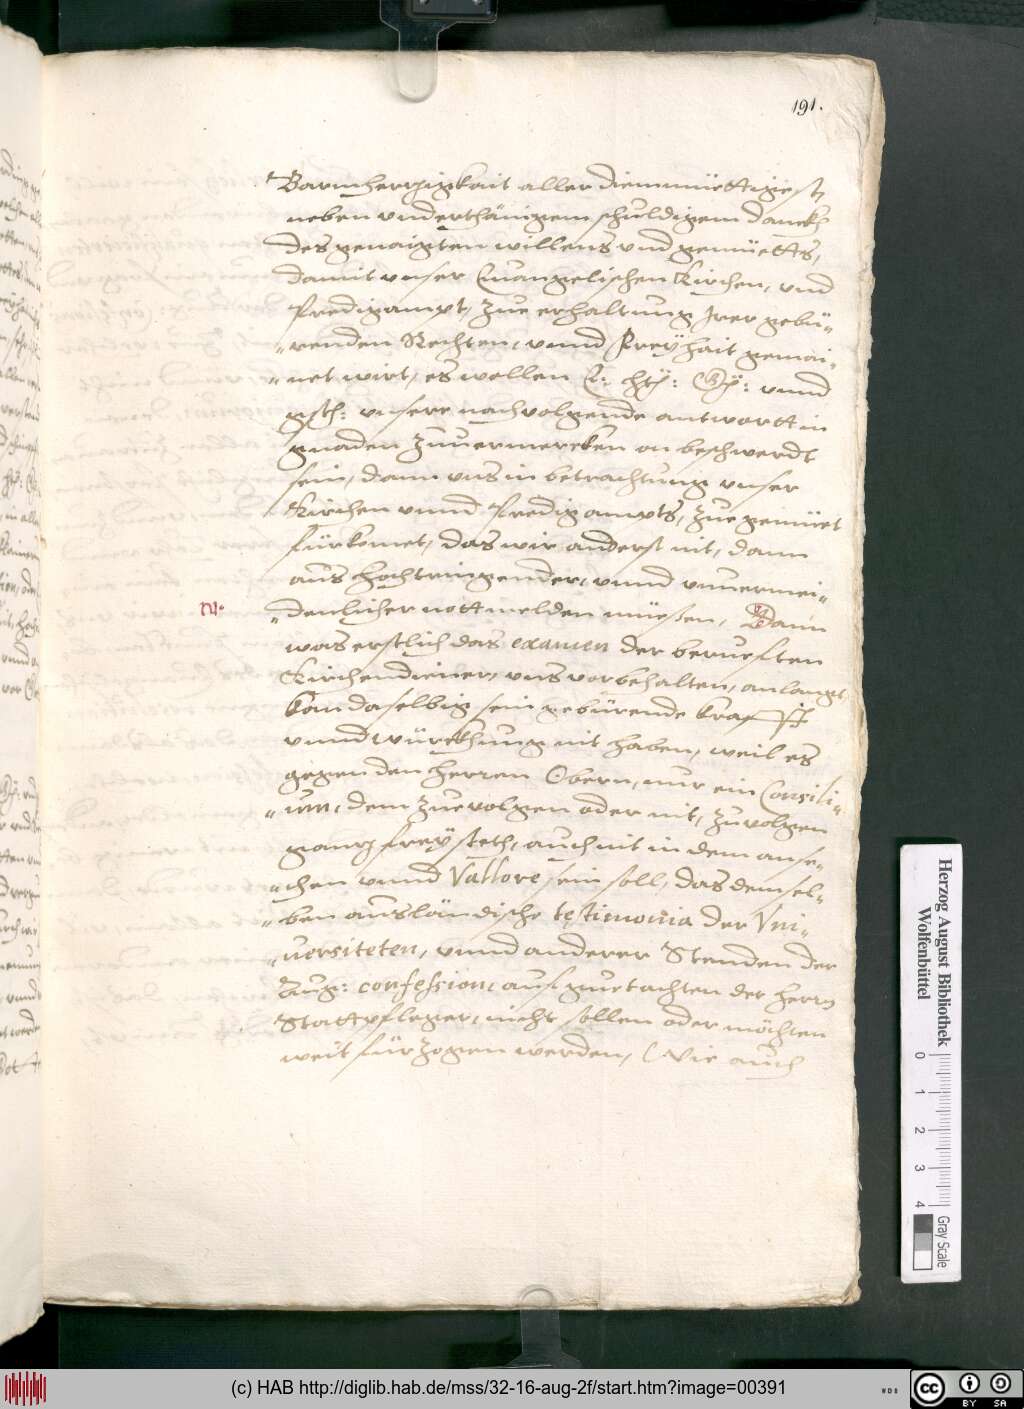 191.
Barmhertzigkait aller diemmüettigest,
neben vnderthänigem schuldigem danckh
des genaigten willens vnd gemüetts,
damit vnser Euangelischen Kirchen, vnd
Predigampt, zue erhaltung Irer gebü„
„renden Rechten, vnnd Freyhait gemai„
„net wirt, es wellen E: G: vnnd
gst: vnsere nachvolgende antwortt in
gnaden zuuermercken on beschwerdt
sein, dann vns in betrachtung vnser
Kirchen vnnd Predigampts, zue gemüet
fürkomet, das wir anderst nit, dann
aus hochtringender, vnnd vnuermei„
N.
„denlicher nott melden müeßen, Dann
was erstlich das examen der berueften
Kirchendiener, vns vorbehalten, anlangt
kan daselbig sein gebürende krafft
vnnd würckhung nit haben, weil es
gegen den herren Obern, nur ein Consili„
„um, dem zuevolgen oder nit, zuvolgen
gantz frey steth, auch nit in dem anse„
„chen vnnd Vallore sein soll, das demsel„
„ben ausländische testimonia der Vni„
„uersiteten, vnnd anderer Stenden der
Aug: confession, auf guetachten der herrn
Stattpfleger, nicht sollen oder möchten
weit fürzogen werden, (Wie auch
Herzog August Bibliothek
Wolfenbüttel
0 1 2 3 4
Gray Scale
(c) HAB http://diglib.hab.de/mss/32-16-aug-2f/start.htm?image=00391
WDB
cc
BY SA